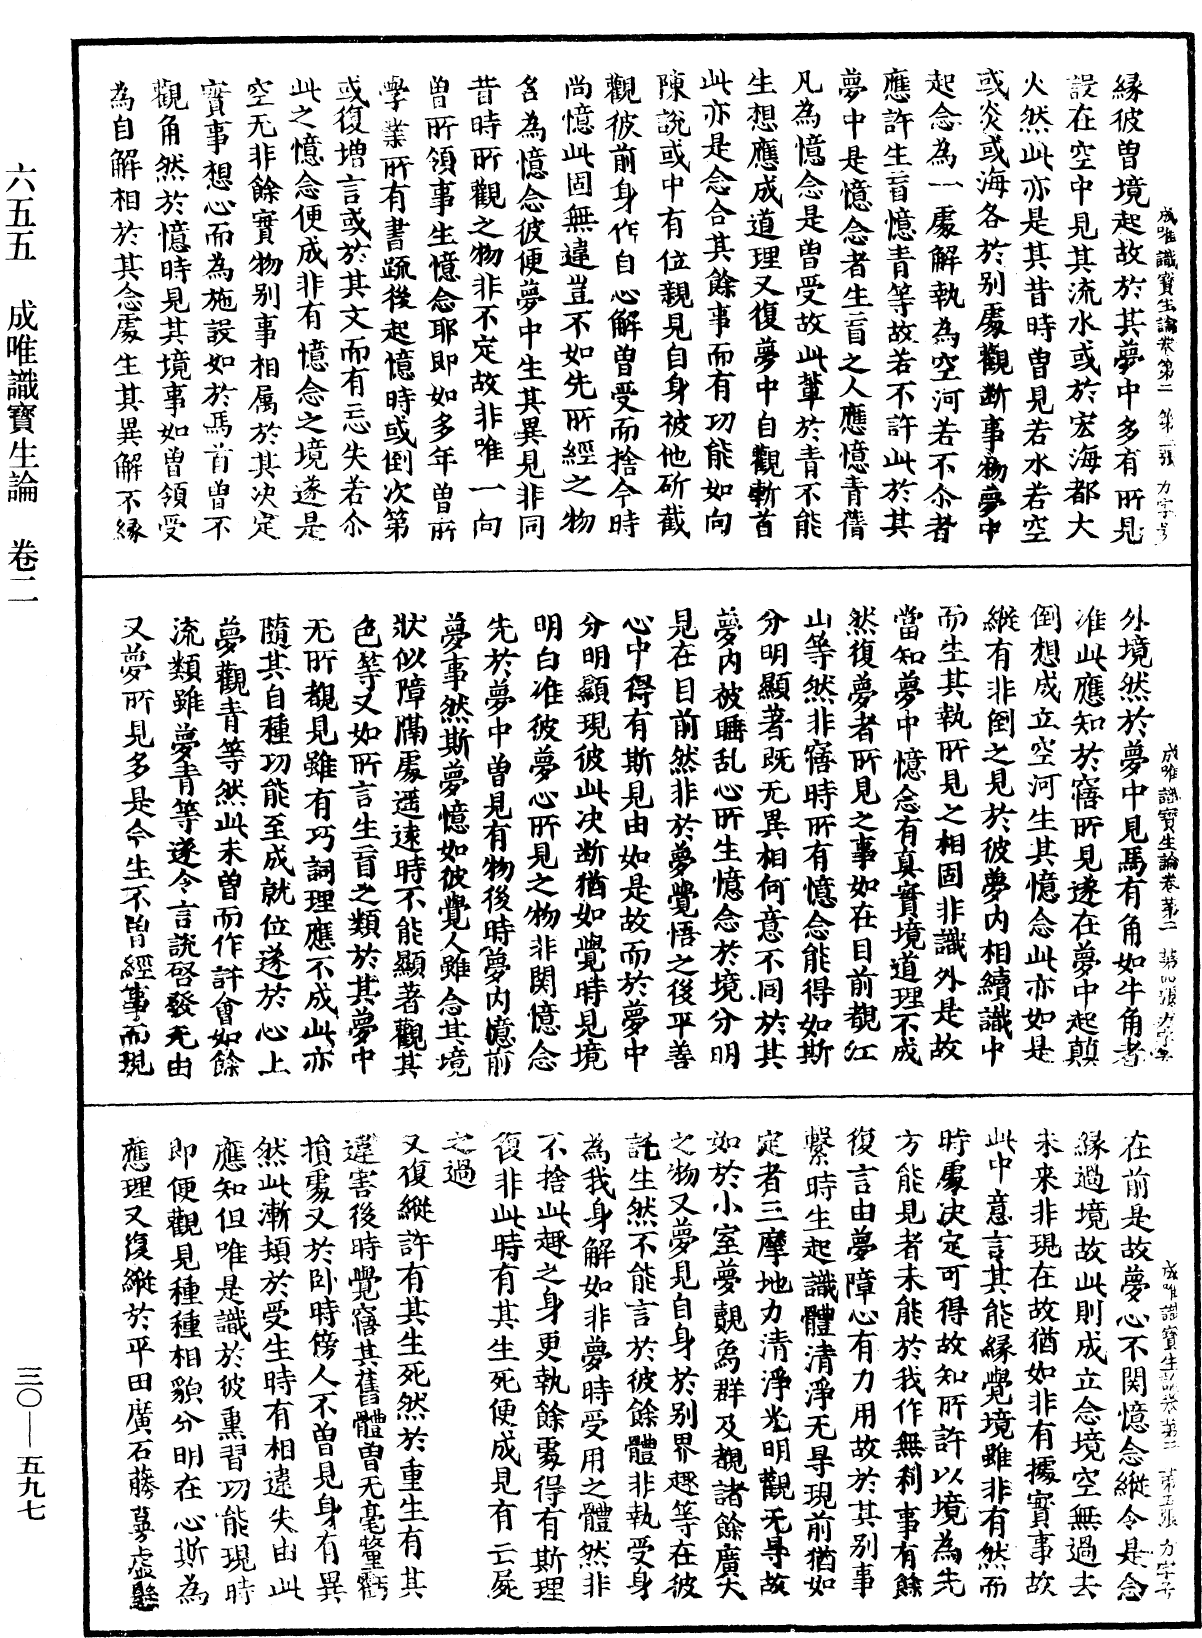 緣彼曽境起故於其夢中多有所見
設在空中見其流水或於宏海都大
火然此亦是其昔時曽見若水若空
或炎或海各於別處觀斷事物夢中
起念為一處解執為空河若不尒者
應許生盲憶青等故若不許此於其
夢中是憶念者生盲之人應憶青僣
凡為憶念是曽受故此輩於青不能
生想應成道理又復夢中自觀斬首
此亦是念合其餘事而有功能如向
陳說或中有位親見自身被他斫截
觀彼前身作自心解曽受而捨今時
尚憶此固無違豈不如先所經之物
名為憶念彼便夢中生其異見非同
昔時所觀之物非不定故非唯一向
曽所領事生憶念耶即如多年曽所
學業所有書疏後起憶時或倒次第
或復增言或於其文而有忘失若尒
此之憶念便成非有憶念之境遂是
空无非餘實物別事相属於其决定
實事想心而為施設如於馬首曽不
觀角然於憶時見其境事如曽領受
為自解相於其念處生其異解不緣
成唯識寶生論卷第二 第三張 力字号
外境然於夢中見馬有角如牛角者
准此應知於寤所見遂在夢中起顛
倒想成立空河生其憶念此亦如是
縱有非倒之見於彼夢内相續識中
而生其執所見之相固非識外是故
當知夢中憶念有真實境道理不成
然復夢者所見之事如在目前覩江
山等然非寤時所有憶念能得如斯
分明顯著既无異相何意不同於其
夢内被睡乱心所生憶念於境分明
見在目前然非於夢覺悟之後平善
心中得有斯見由如是故而於夢中
分明顯現彼此决断猶如覺時見境
明白准彼夢心所見之物非関憶念
先於夢中曽見有物後時夢内憶前
夢事然斯夢憶如彼覺人雖念其境
狀似障隔處遥遠時不能顯著觀其
色等又如所言生盲之類於其夢中
无所覩見雖有巧詞理應不成此亦
隨其自種功能至成就位遂於心上
夢觀青等然此未曽而作許會如餘
流類雖夢青等遂令言說啓發无由
又夢所見多是今生不曽經事而現
成唯識寶生論卷第二 第四張 力字号
在前是故夢心不関憶念縱令是念
緣過境故此則成立念境空無過去
未来非現在故猶如非有據實事故
此中意言其能緣覺境雖非有然而
時處决定可得故知所許以境為先
方能見者未能於我作無利事有餘
復言由夢障心有力用故於其別事
繫時生起識體清淨无㝵現前猶如
定者三摩地力清淨光明觀无㝵故
如於小室夢覩象群及覩諸餘廣大
之物又夢見自身於別界趣等在彼
託生然不能言於彼餘體非執受身
為我身解如非夢時受用之體然非
不捨此趣之身更執餘處得有斯理
復非此時有其生死便成見有亡屍
之過
又復縱許有其生死然於重生有其
違害後時覺寤其舊體曽无毫氂虧
損處又於卧時傍人不曽見身有異
然此漸頓於受生時有相違失由此
應知但唯是識於彼熏習功能現時
即便觀見種種相貌分明在心斯為
應理又復縱於平田廣石藤蔓虛懸
成唯識寶生論卷第二 第五張 力字号
六五五 成唯識寶生論 卷二
三〇—五九七